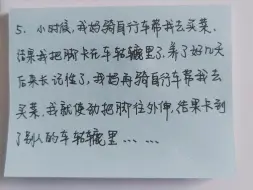 5、小时候,我妈骑自行车带我去买菜,
结果我把脚卡在车轱辘里了,养了好几天
后来长记性了,我妈再骑自行车带我去
买菜,我就使劲把脚往外伸,结果卡到
了别人的车轱辘里……